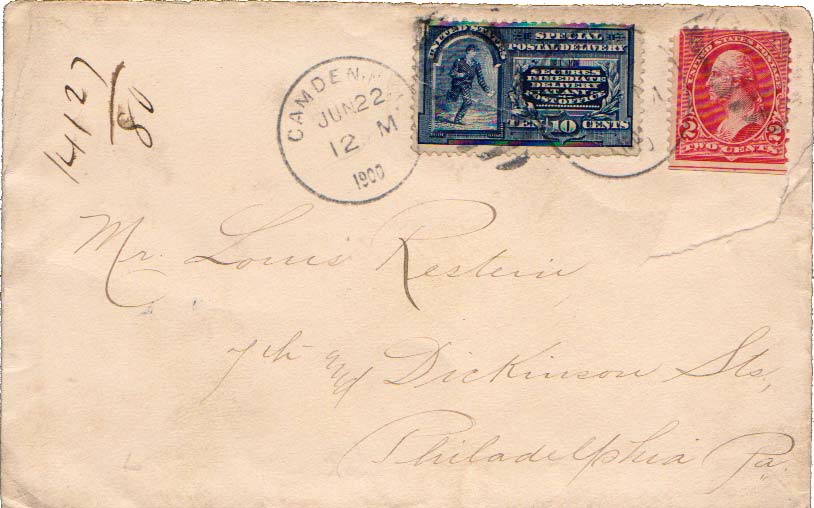 14127
80
CAMDEN, N.J.
JUN 22
12 M
1900
UNITED STATES
SPECIAL
POSTAL DELIVERY
SECURES
IMMEDIATE
DELIVERY
AT ANY
POST OFFICE
10 CENTS
UNITED STATES POSTAGE
2 2
TWO CENTS
Mr. Louis Restein
7th and Dickinson Sts,
Philadelphia Pa.